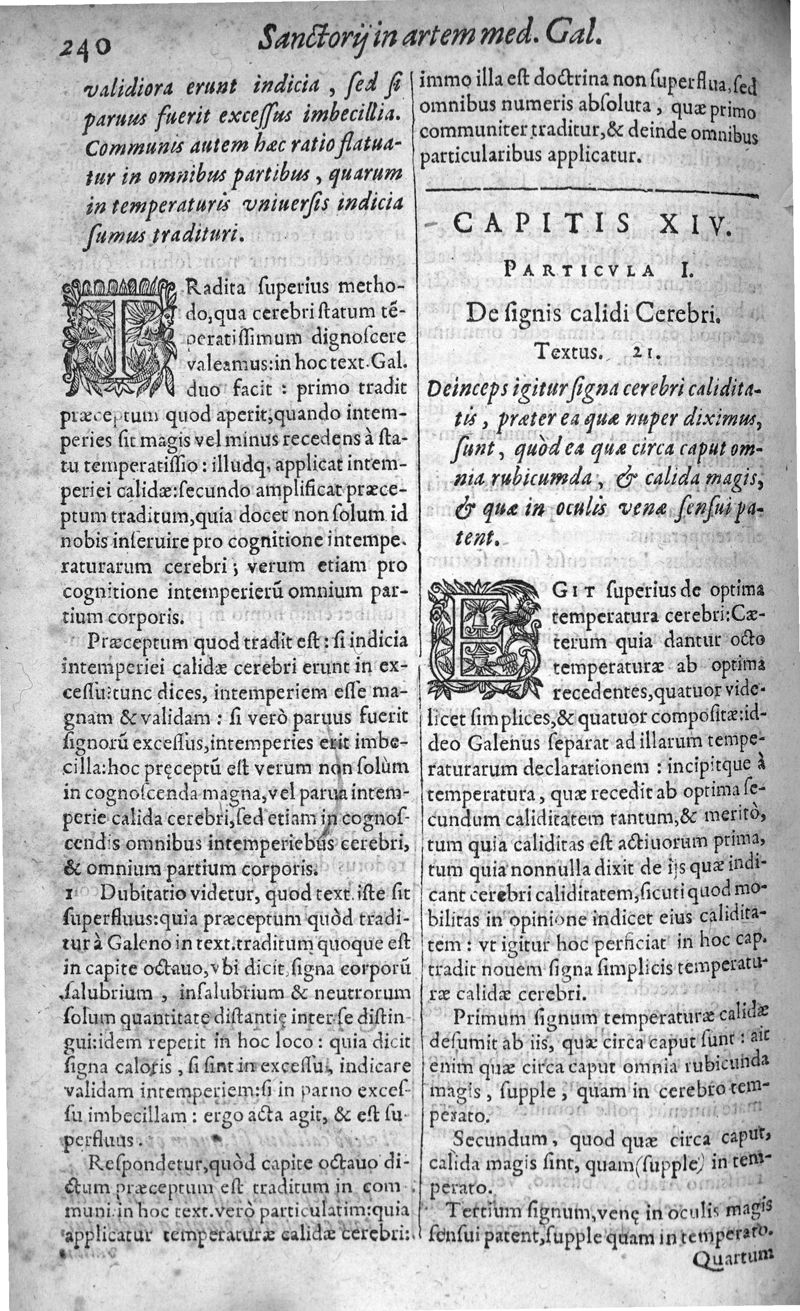 240
Sanctorij in artem med. Gal.
validiora erunt indicia, ſed ſi
paruus fuerit exceſſus imbecillia.
Communis autem hæc ratio ſtatua-
tur in omnibus partibus, quarum
in temperaturis vniuerſis indicia
ſumus tradituri.
TRadita ſuperius metho-
do, qua cerebri ſtatum tē-
peratiſſimum dignoſcere
valeamus: in hoc text. Gal.
duo facit: primo tradit
præceptum quod aperit, quando intem-
peries ſit magis vel minus recedens à ſta-
tu temperatiſſio: illudq, applicat intem-
periei calidæ: ſecundo amplificat præce-
ptum traditum, quia docet non ſolum id
nobis inſeruire pro cognitione intempe-
raturarum cerebri; verum etiam pro
cognitione intemperierū omnium par-
tium corporis.
Præceptum quod tradit eſt: ſi indicia
intemperiei calidæ cerebri erunt in ex-
ceſſu: tunc dices, intemperiem eſſe ma-
gnam & validam: ſi verò paruus fuerit
ſignorū exceſſus, intemperies erit imbe-
cilla: hoc pręceptū eſt verum non ſolùm
in cognoſcenda magna, vel parua intem-
perie calida cerebri, ſed etiam in cognoſ-
cendis omnibus intemperiebus cerebri,
& omnium partium corporis.
1 Dubitatio videtur, quod text. iſte ſit
ſuperfluus: quia præceptum quòd tradi-
tur à Galeno in text. traditum quoque eſt
in capite octauo, vbi dicit ſigna corporū
ſalubrium, inſalubrium & neutrorum
ſolum quantitate diſtantię inter ſe diſtin-
gui: idem repetit in hoc loco: quia dicit
ſigna caloris, ſi ſint in exceſſu, indicare
validam intemperiem: ſi in paruo exceſ-
ſu imbecillam: ergo acta agit, & eſt ſu-
perfluus.
Reſpondetur, quòd capite octauo di-
ctum præceptum eſt traditum in com-
muni in hoc text. verò particulatim: quia
applicatur temperaturæ calidæ cerebri:
immo illa eſt doctrina non ſuperflua, ſed
omnibus numeris abſoluta, quæ primo
communiter traditur, & deinde omnibus
particularibus applicatur.
CAPITIS XIV.
PARTICVLA I.
De ſignis calidi Cerebri.
Textus. 21.
Deinceps igitur ſigna cerebri calidita-
tis, præter ea quæ nuper diximus,
ſunt, quòd ea quæ circa caput om-
nia rubicumda, & calida magis,
& quæ in oculis venæ ſenſui pa-
tent.
EGIT ſuperius de optima
temperatura cerebri: Cæ-
terum quia dantur octo
temperaturæ ab optima
recedentes, quatuor vide-
licet ſimplices, & quatuor compoſitæ: id-
deo Galenus ſeparat ad illarum tempe-
raturarum declarationem: incipitque à
temperatura, quæ recedit ab optima ſe-
cundum caliditatem tantum, & meritò,
tum quia caliditas eſt actiuorum prima,
tum quia nonnulla dixit de ijs quæ indi-
cant cerebri caliditatem, ſicuti quod mo-
bilitas in opinione indicet eius calidita-
tem: vt igitur hoc perficiat in hoc cap.
tradit nouem ſigna ſimplicis temperatu-
ræ calidæ cerebri.
Primum ſignum temperaturæ calidæ
deſumit ab iis, quæ circa caput ſunt: ait
enim quæ circa caput omnia rubicunda
magis, ſupple, quam in cerebro tem-
perato.
Secundum, quod quæ circa caput,
calida magis ſint, quam (ſupple) in tem-
perato.
Tertium ſignum, venę in oculis magis
ſenſui patent, ſupple quam in temperato.
Quartum